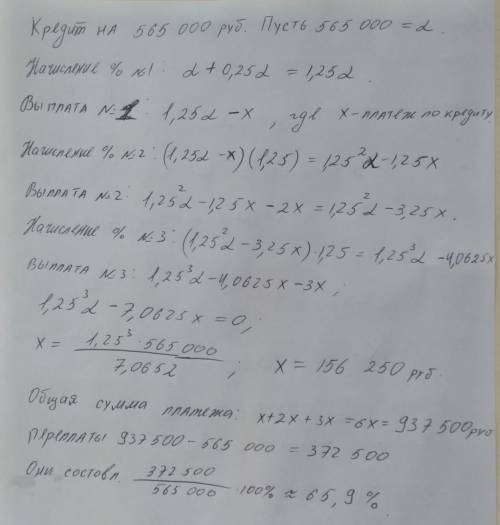 Кредит на 565 000 руб. Пусть 565 000 = α.
Начисление % №1: α + 0,25α = 1,25α.
Выплата №1: 1,25α - x, где x - платеж по кредиту
Начисление % №2: (1,25α - x)(1,25) = 1,25²α - 1,25x
Выплата №2: 1,25²α - 1,25x - 2x = 1,25²α - 3,25x.
Начисление % №3: (1,25²α - 3,25x)·1,25 = 1,25³α - 4,0625x
Выплата №3: 1,25³α - 4,0625x - 3x;
1,25³α - 7,0625x = 0;
x = 1,25³ · 565 000 / 7,0652; x = 156 250 руб.
Общая сумма платежа: x + 2x + 3x = 6x = 937 500 руб
переплаты 937 500 - 565 000 = 372 500
Они составл. 372 500 / 565 000 · 100% ≈ 65,9%.